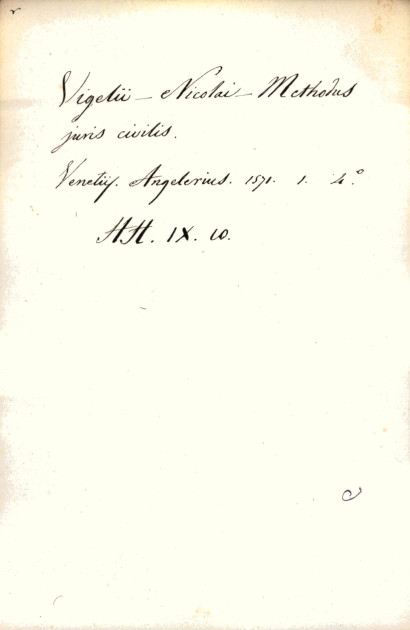 Vigelii - Nicolai - Methodus
juris civilis.
Venetijs. Angelerius. 1571. 1. 4.º
HH. IX. 10.